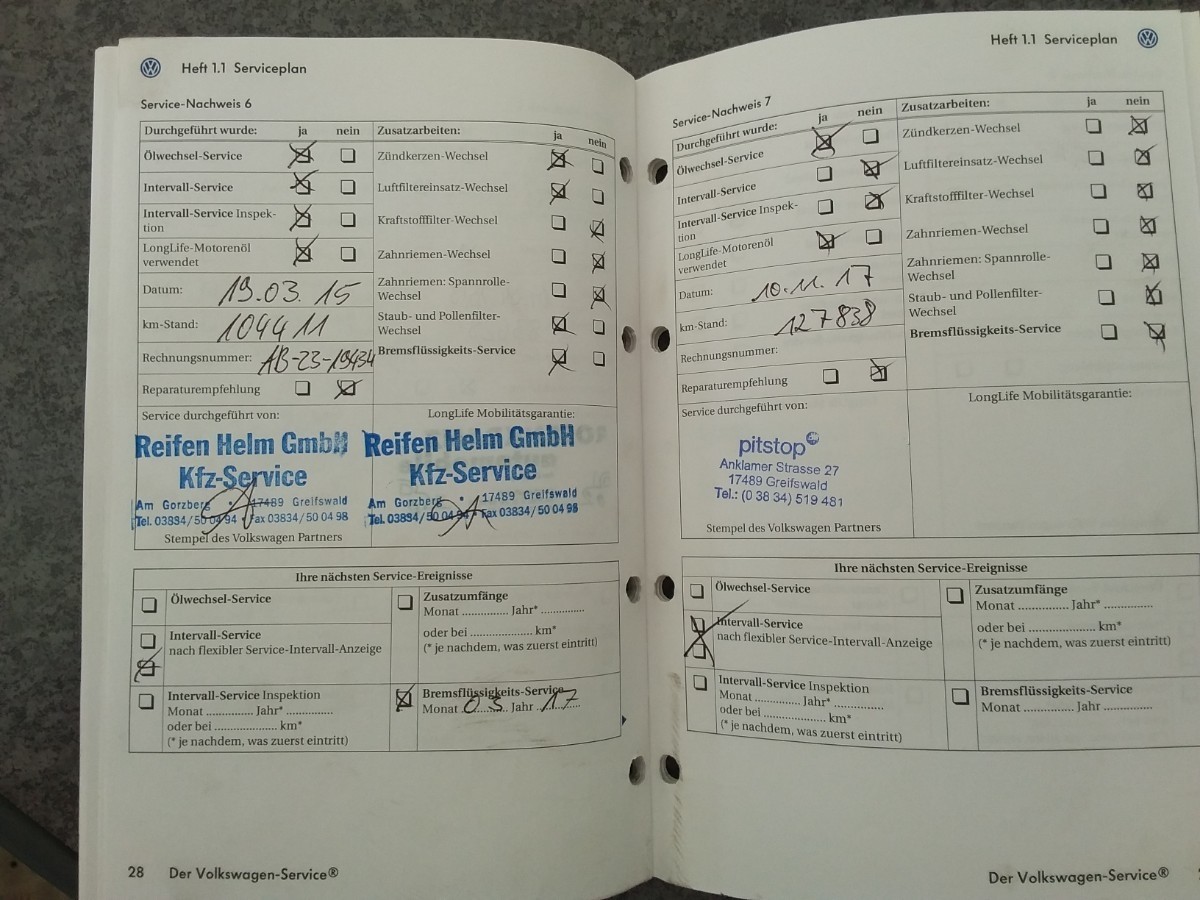 Heft 1.1 Serviceplan
Service-Nachweis 6
Durchgeführt wurde: ja nein
Ölwechsel-Service
Intervall-Service
Intervall-Service Inspek-
tion
LongLife-Motorenöl
verwendet
Datum: 19.03.15
km-Stand: 104411
Rechnungsnummer: AB-23-19434
Reparaturempfehlung
Zusatzarbeiten: ja nein
Zündkerzen-Wechsel
Luftfiltereinsatz-Wechsel
Kraftstofffilter-Wechsel
Zahnriemen-Wechsel
Zahnriemen: Spannrolle-
Wechsel
Staub- und Pollenfilter-
Wechsel
Bremsflüssigkeits-Service
Service durchgeführt von:
Reifen Helm GmbH
Kfz-Service
Am Gorzberg • 17489 Greifswald
Tel. 03834/50 04 94 • Fax 03834/50 04 98
Stempel des Volkswagen Partners
LongLife Mobilitätsgarantie:
Reifen Helm GmbH
Kfz-Service
Am Gorzberg • 17489 Greifswald
Tel. 03834/50 04 94 • Fax 03834/50 04 98
Ihre nächsten Service-Ereignisse
Ölwechsel-Service
Intervall-Service
nach flexibler Service-Intervall-Anzeige
Intervall-Service Inspektion
Monat .............. Jahr* ..............
oder bei .................... km*
(* je nachdem, was zuerst eintritt)
Zusatzumfänge
Monat .............. Jahr* ..............
oder bei .................... km*
(* je nachdem, was zuerst eintritt)
Bremsflüssigkeits-Service
Monat 03 Jahr 17
28 Der Volkswagen-Service®
Heft 1.1 Serviceplan
Service-Nachweis 7
Durchgeführt wurde: ja nein
Ölwechsel-Service
Intervall-Service
Intervall-Service Inspek-
tion
LongLife-Motorenöl
verwendet
Datum: 10.11.17
km-Stand: 127838
Rechnungsnummer:
Reparaturempfehlung
Zusatzarbeiten: ja nein
Zündkerzen-Wechsel
Luftfiltereinsatz-Wechsel
Kraftstofffilter-Wechsel
Zahnriemen-Wechsel
Zahnriemen: Spannrolle-
Wechsel
Staub- und Pollenfilter-
Wechsel
Bremsflüssigkeits-Service
Service durchgeführt von:
pitstop
Anklamer Strasse 27
17489 Greifswald
Tel.: (0 38 34) 519 481
Stempel des Volkswagen Partners
LongLife Mobilitätsgarantie:
Ihre nächsten Service-Ereignisse
Ölwechsel-Service
Intervall-Service
nach flexibler Service-Intervall-Anzeige
Intervall-Service Inspektion
Monat .............. Jahr* ..............
oder bei .................... km*
(* je nachdem, was zuerst eintritt)
Zusatzumfänge
Monat .............. Jahr* ..............
oder bei .................... km*
(* je nachdem, was zuerst eintritt)
Bremsflüssigkeits-Service
Monat .............. Jahr ..............
Der Volkswagen-Service®